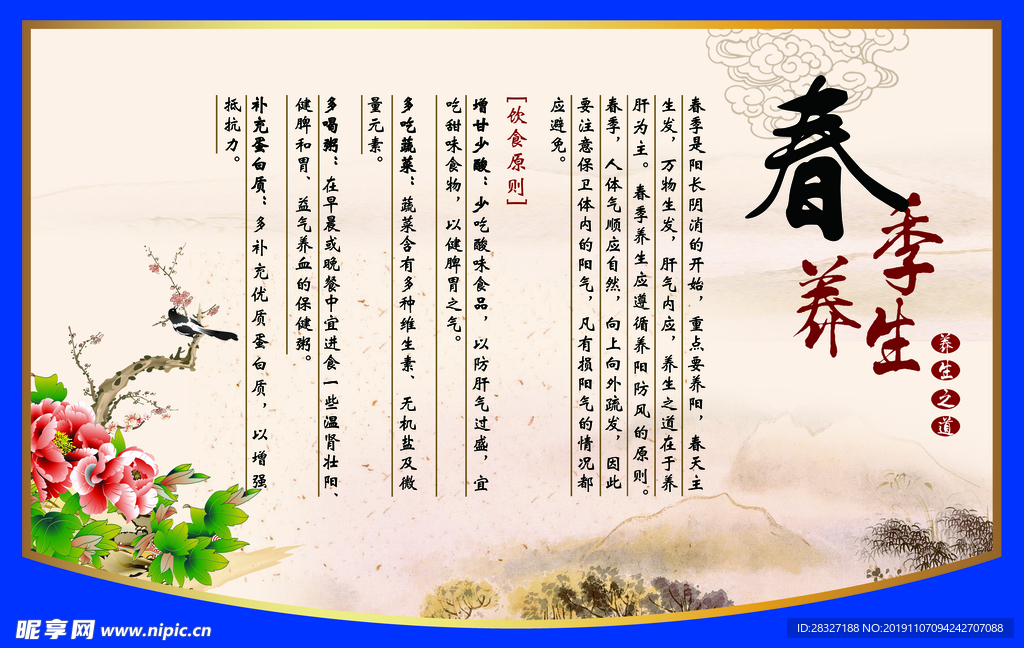 春季养生
养生之道
春季是阳长阴消的开始，重点要养阳，春天主
生发，万物生发，肝气内应，养生之道在于养
肝为主。春季养生应遵循养阳防风的原则。
春季，人体气顺应自然，向上向外疏发，因此
要注意保卫体内的阳气，凡有损阳气的情况都
应避免。
[饮食原则]
增甘少酸：少吃酸味食品，以防肝气过盛，宜
吃甜味食物，以健脾胃之气。
多吃蔬菜：蔬菜含有多种维生素、无机盐及微
量元素。
多喝粥：在早晨或晚餐中宜进食一些温肾壮阳、
健脾和胃、益气养血的保健粥。
补充蛋白质：多补充优质蛋白质，以增强
抵抗力。
昵享网 www.nipic.cn
ID:28327188 NO:20191107094242707088